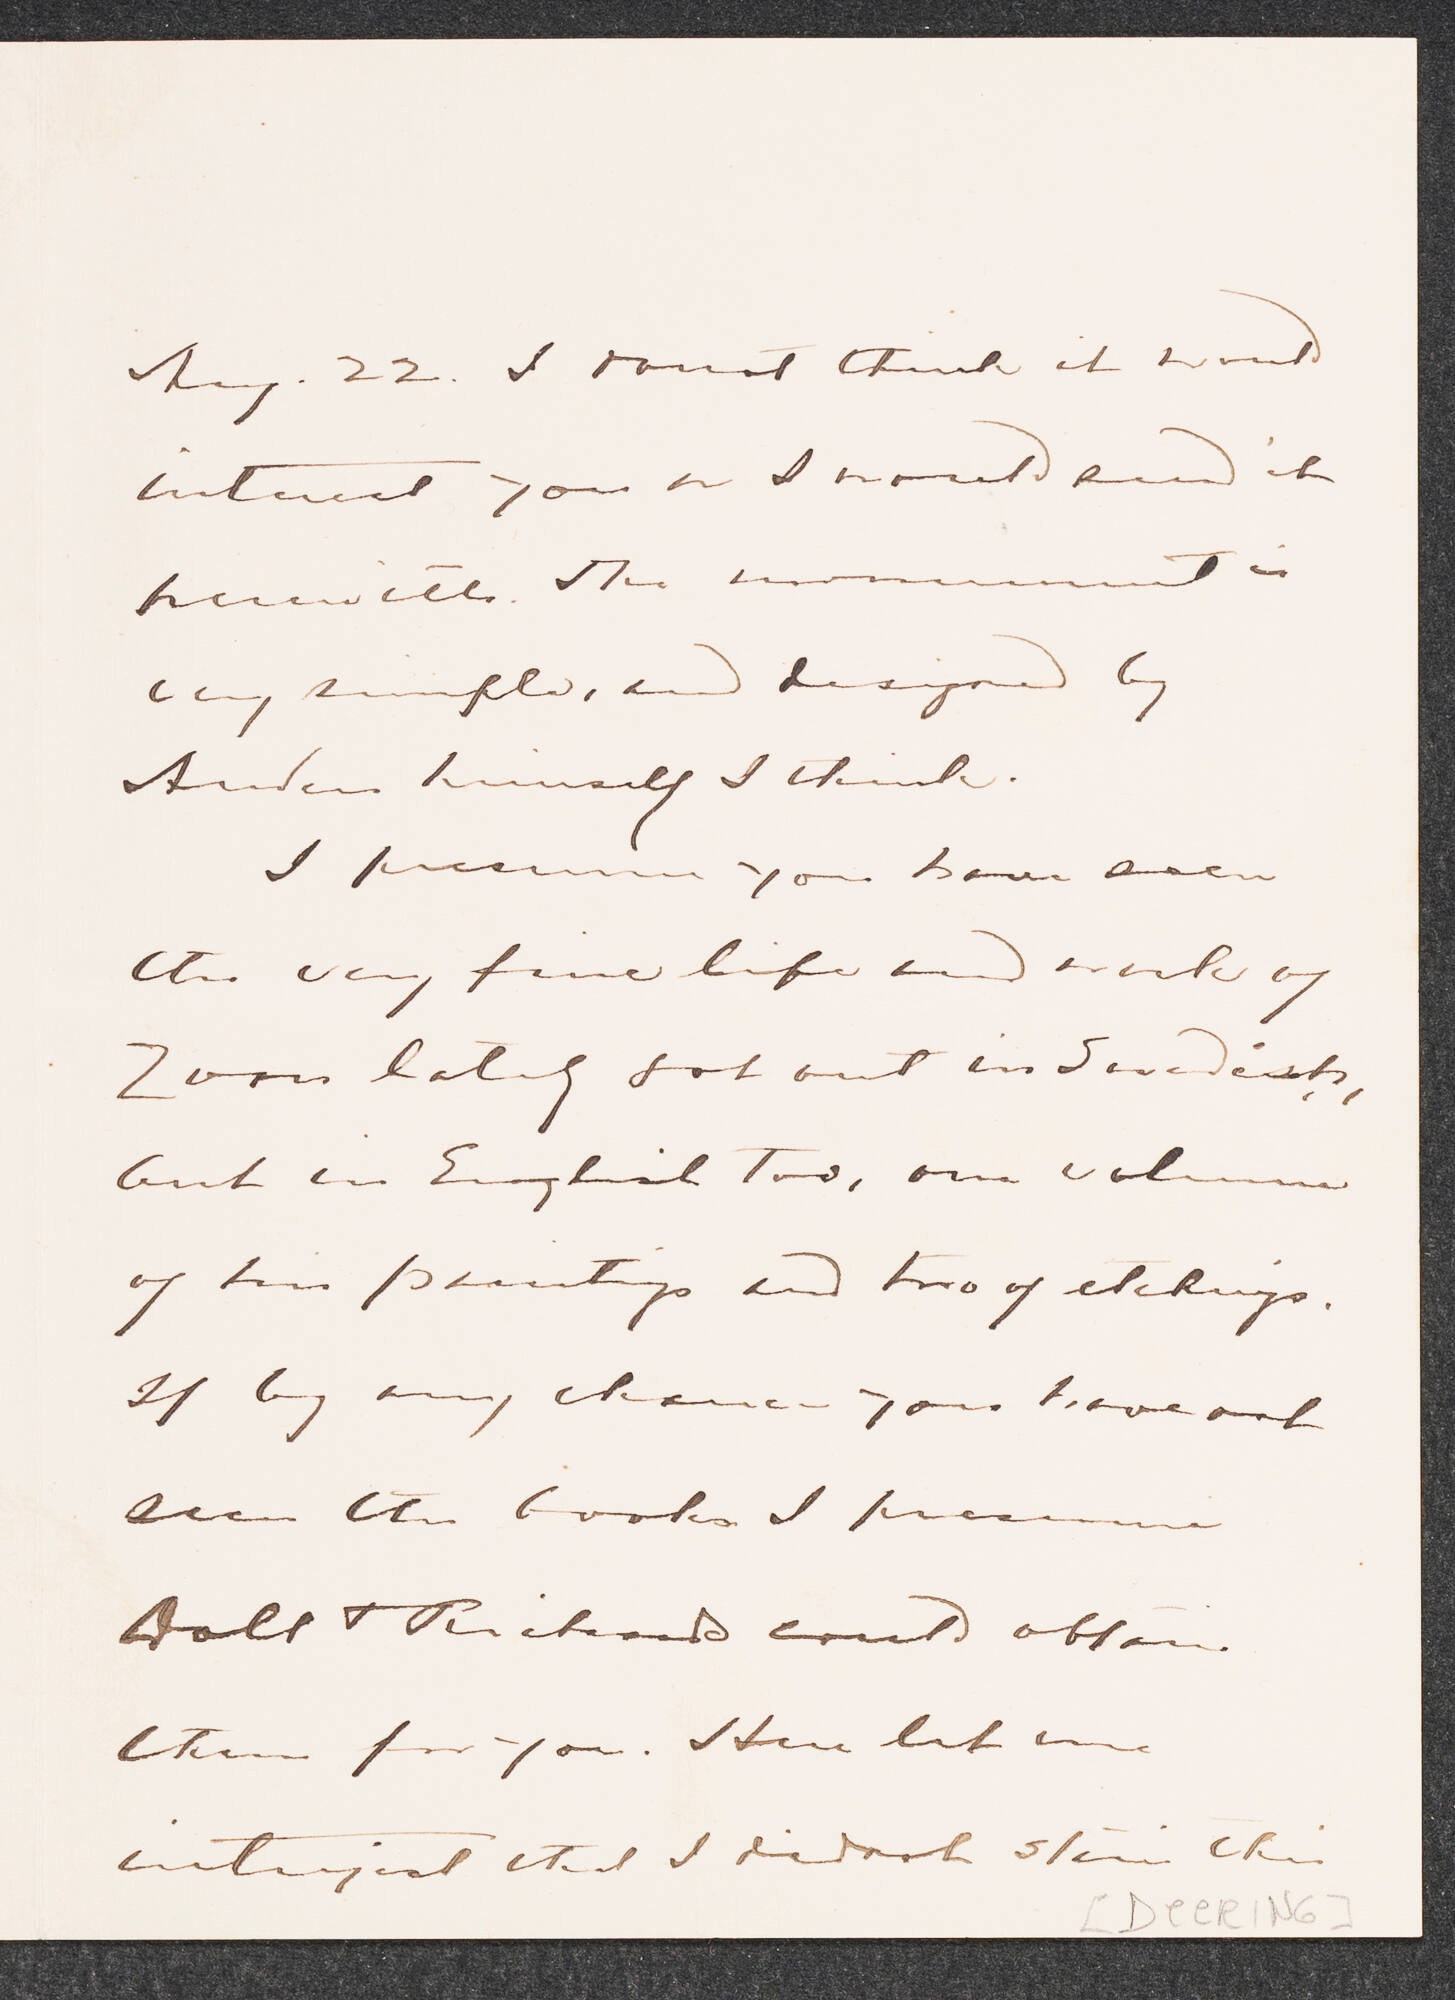 Aug. 22. I do not think it would
interest you or I would send it
herewith. The monument is
very simple, and designed by
Anders himself I think.
I presume you have seen
the very fine life and work of
Zorn lately got out in Swedish,
but in English too, one volume
of his paintings and two of etchings.
If by any chance you have not
seen the books I presume
Doll & Richards could obtain
them for you. Here let me
interject that I did not stain this
[DEERING]